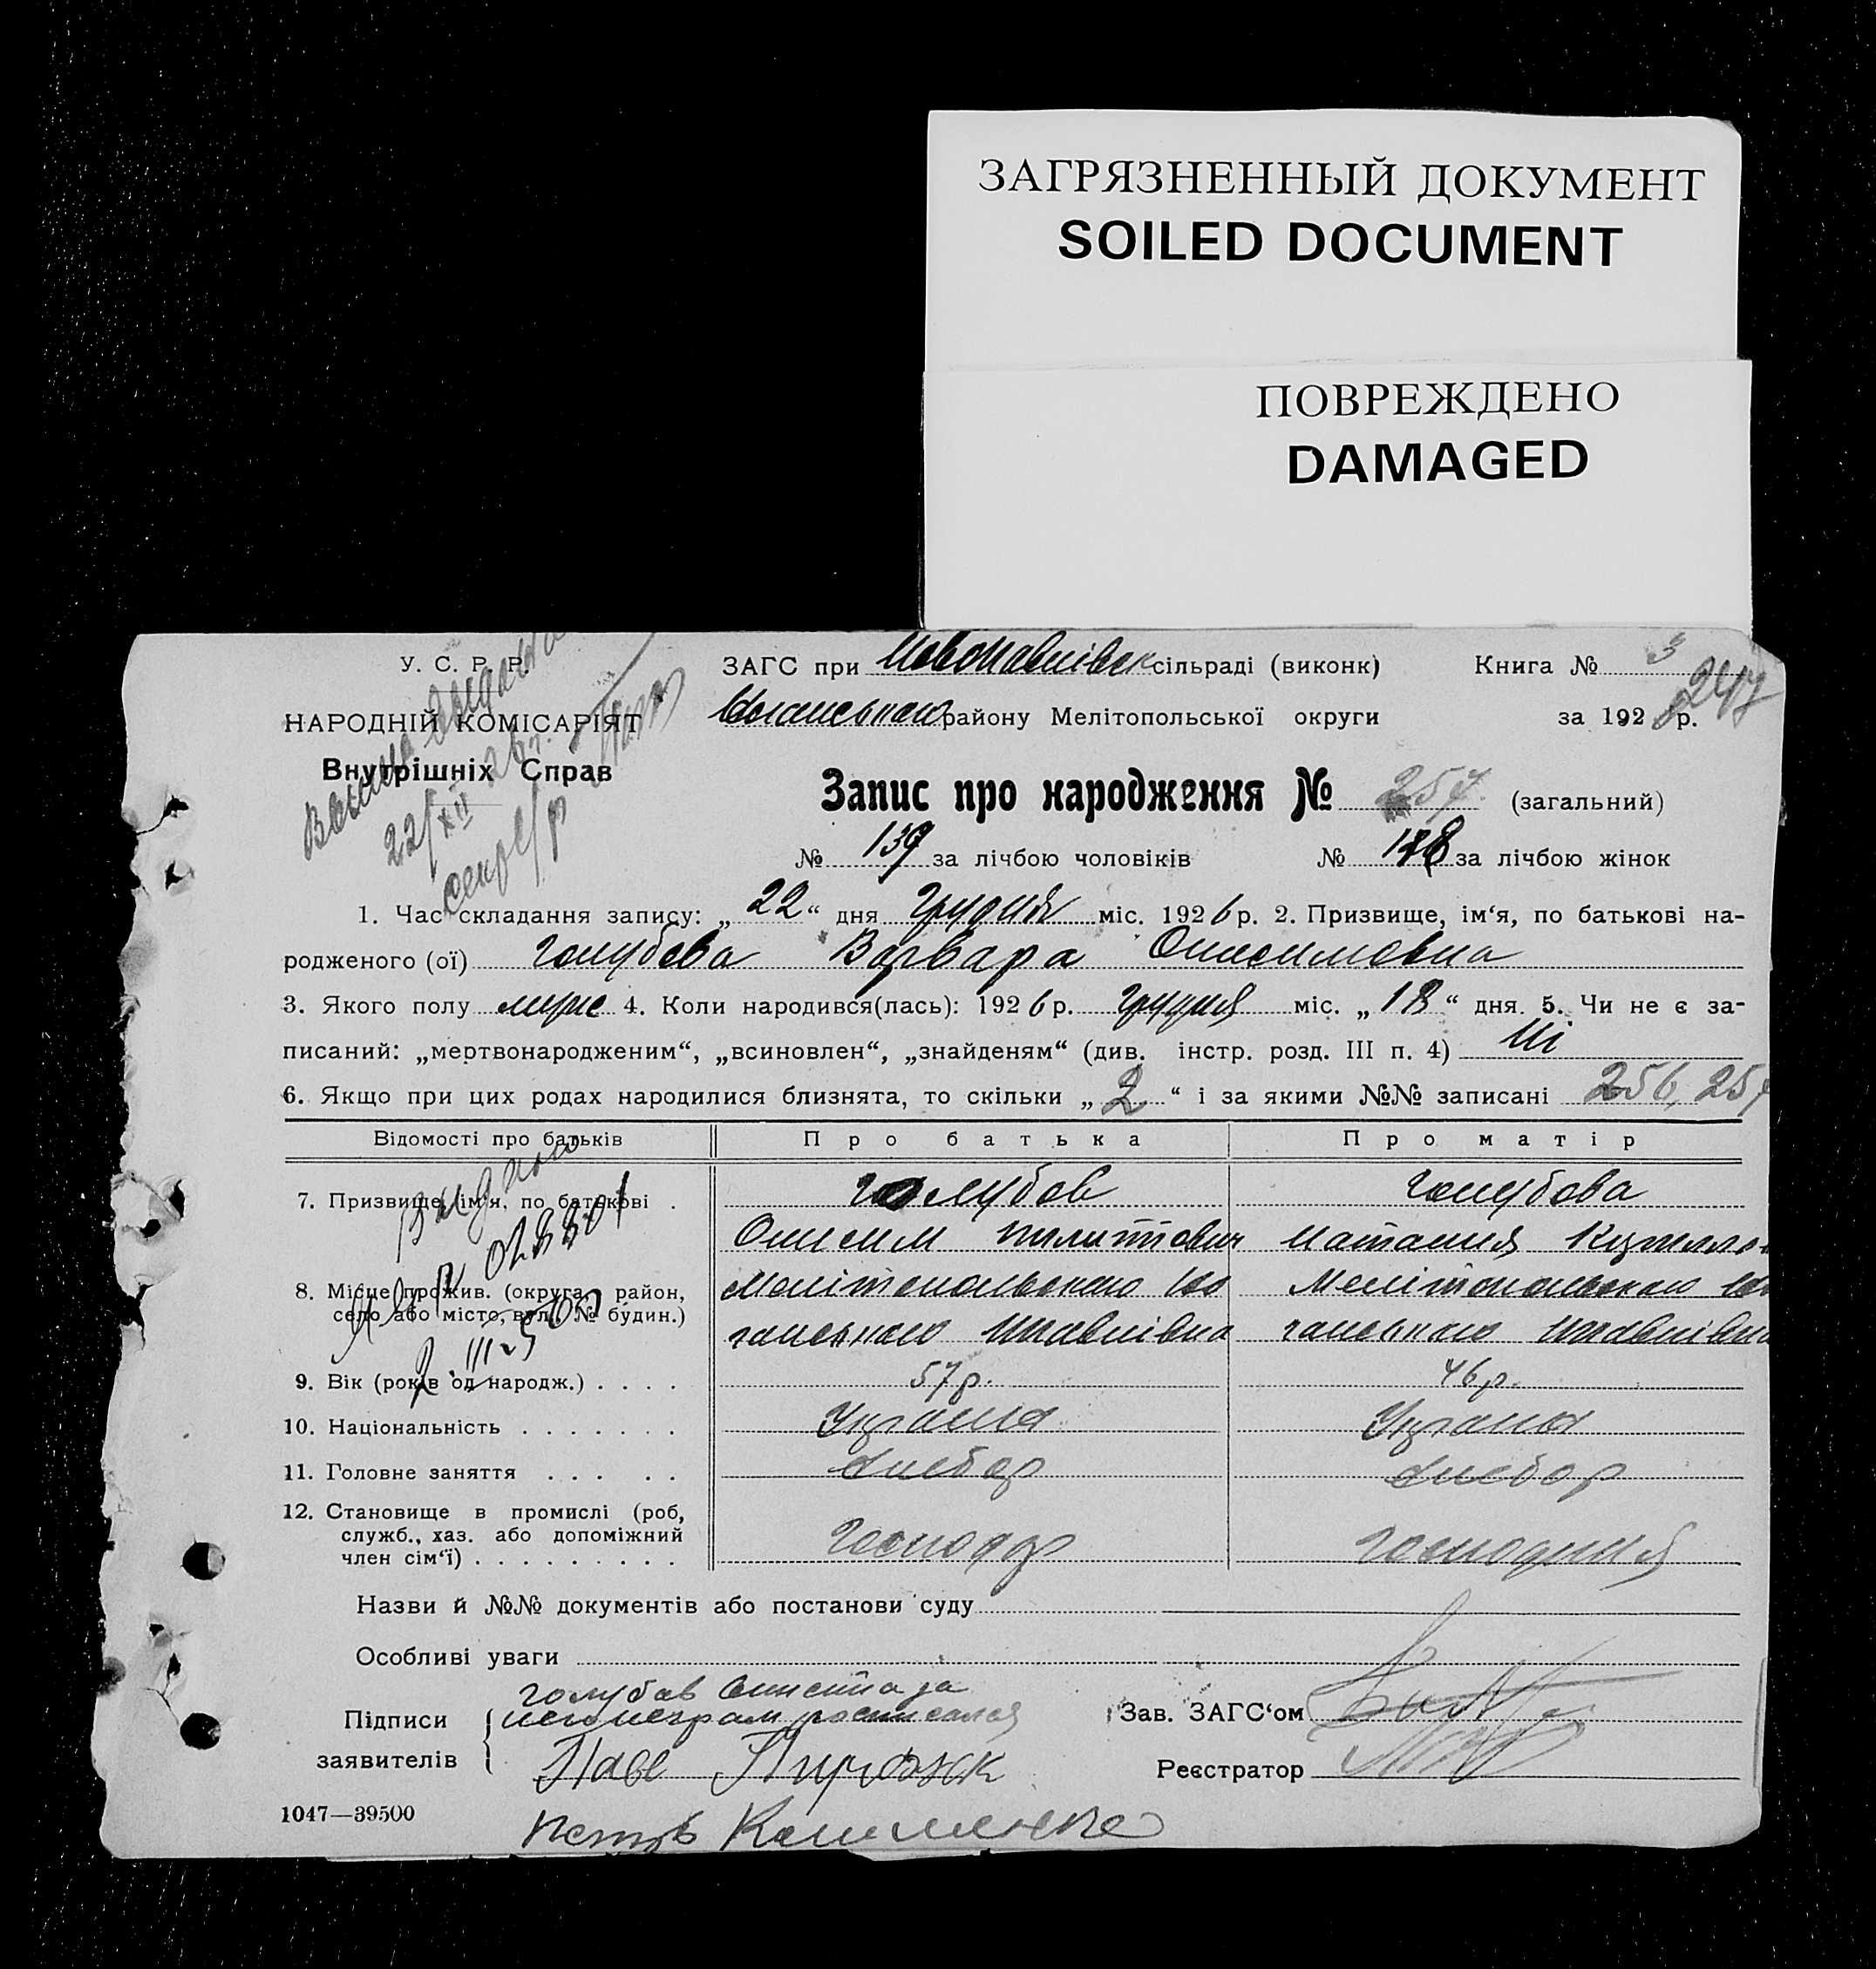 ЗАГРЯЗНЕННЫЙ ДОКУМЕНТ
SOILED DOCUMENT
ПОВРЕЖДЕНО
DAMAGED
У. С. Р. Р.
НАРОДНІЙ КОМІСАРІЯТ
Внутрішніх Справ
22/XII 26 г.
ЗАГС при Новопавлівск сільраді (виконк) Книга № 3
району Мелітопольської округи за 1926 р.
247
Запис про народження № 257 (загальний)
№ 139 за лічбою чоловіків № 128 за лічбою жінок
1. Час складання запису: „22“ дня Грудня міс. 1926 р. 2. Призвище, ім‘я, по батькові на-
родженого (ої) Голубева Варвара Онисимовна
3. Якого полу 4. Коли народився(лась): 1926 р. грудня міс. „18“ дня. 5. Чи не є за-
писаний: „мертвонародженим“, „всиновлен“, „знайденям“ (див. інстр. розд. III п. 4) Ні
6. Якщо при цих родах народилися близнята, то скільки „2“ і за якими №№ записані 256, 257
Відомості про батьків Про батька Про матір
7. Призвище, ім‘я, по батькові . Голубов Голубова
Онисим Наталия
8. Місце прожив. (округа, район, село або місто, вул. № будин.) Мелітопольского Мелітопольского
Видано
9. Вік (років од народж.) . . . . 57 р. 46 р.
10. Національність . . . . . . . Украина Украина
11. Головне заняття . . . . . Хлебор Хлебор
12. Становище в промислі (роб, служб., хаз. або допоміжний член сім‘ї) . . . . . . . . . Господар Господиня
Назви й №№ документів або постанови суду
Особливі уваги
Підписи заявителів
Голубов за
неграм росписался
Зав. ЗАГС‘ом
Реєстратор
1047—39500
Петр